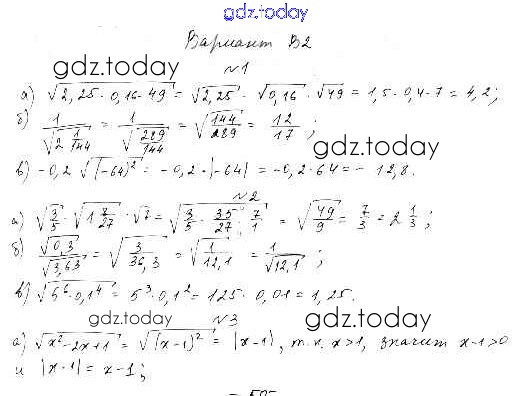 gdz.today
Вариант В2
gdz.today
№1
а) √(2,25 · 0,16 · 49) = √2,25 · √0,16 · √49 = 1,5 · 0,4 · 7 = 4,2;
б) 1/√(2 1/144) = 1/√(289/144) = √(144/289) = 12/17;
gdz.today
в) -0,2 √((-64)²) = -0,2 · |-64| = -0,2 · 64 = -12,8.
№2
а) √(3/5) · √(1 8/27) · √7 = √(3/5 · 35/27 · 7/1) = √(49/9) = 7/3 = 2 1/3;
б) √0,3/√3,63 = √(3/36,3) = √(1/12,1) = 1/√12,1;
в) √(5⁶ · 0,1⁴) = 5³ · 0,1² = 125 · 0,01 = 1,25.
gdz.today
gdz.today
№3
а) √(x² - 2x + 1) = √((x - 1)²) = |x - 1|, т.к. x > 1, значит x - 1 > 0
и |x - 1| = x - 1;